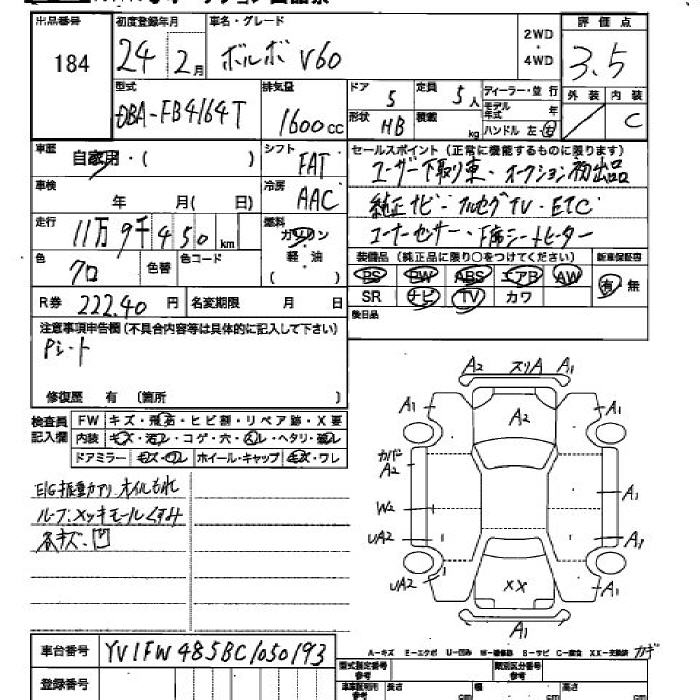 出品番号
184
初度登録年月
24 2月
車名・グレード
ボルボ V60
2WD
・
4WD
評価点
3.5
外装 内装
C
型式
DBA-FB4164T
排気量
1600cc
ドア
5
定員
5人
ディーラー・並行
モデル年式 年
形状
HB
積載
kg
ハンドル 左・右
車歴
自家用・( )
シフト
FAT
セールスポイント(正常に機能するものに限ります)
ユーザー下取り車・オークション初出品
純正ナビ・フルセグTV・ETC
コーナーセンサー・F席シートヒーター
車検
年 月( 日)
冷房
AAC
走行
11万9千450km
燃料
ガソリン
軽・油
( )
色
クロ
色替
色コード
装備品(純正品に限り○をつけてください)
新車保証書
PS PW ABS エアB AW
有・無
SR ナビ TV カワ
R券 222.40円
名変期限 月 日
後日品
注意事項申告欄(不具合内容等は具体的に記入して下さい)
Pシート
修復歴 有(箇所 )
検査員
記入欄
FW キズ・飛石・ヒビ割・リペア跡・X要
内装 キズ・汚れ・コゲ・穴・スレ・ヘタリ・破れ
ドアミラー キズ・ワレ ホイール・キャップ キズ・ワレ
E/G振動アリ オイルもれ
ルーフ・メッキモールくすみ
各キズ・凹
A2 スリA A1
A1 A2 A1
カバー
A2
A1
W2
UA2 A1
UA2 XX A1
A1
A-キズ E-エクボ U-凹み W-補修跡 S-サビ C-腐食 XX-交換済
車台番号
YV1FW485BC1050193
登録番号
型式指定番号
参考
類別区分番号
参考
車車証明用
参考
長さ cm
幅 cm
高さ cm